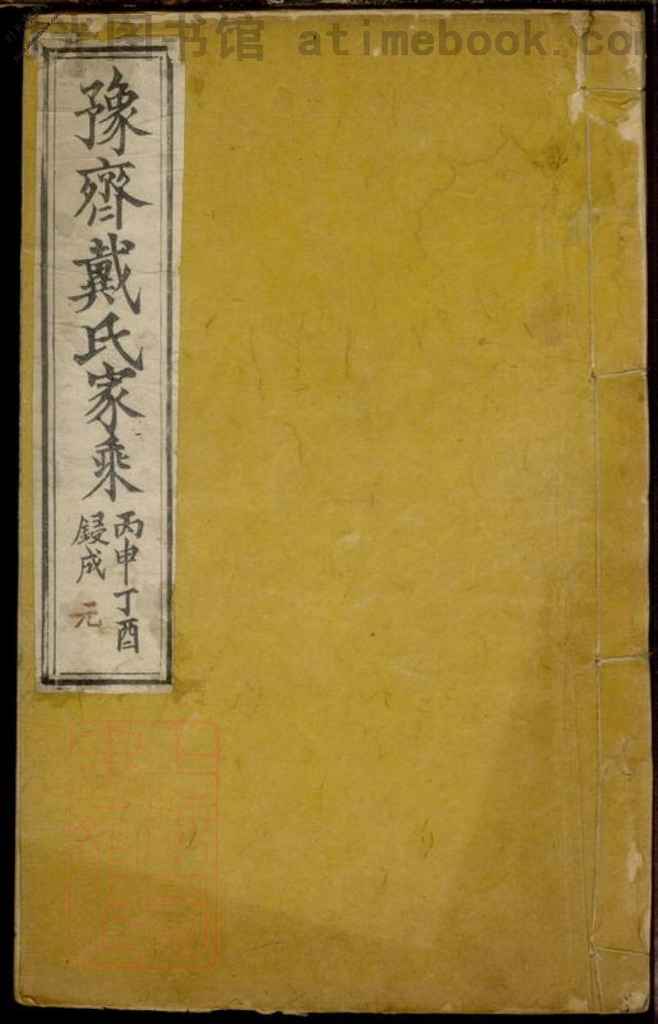 光图书馆 atimebook.com
豫齋戴氏家乘
丙申丁酉
鋟成 元